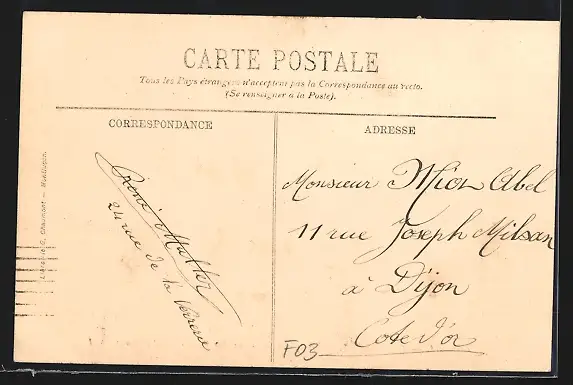 CARTE POSTALE
Tous les Pays étrangers n'acceptent pas la Correspondance au recto.
(Se renseigner à la Poste).
CORRESPONDANCE
René Muller
24 rue de la Verrerie
ADRESSE
Monsieur Mion Abel
11 rue Joseph Milsan
à Dijon
Cote d'or
F03
Chaumont